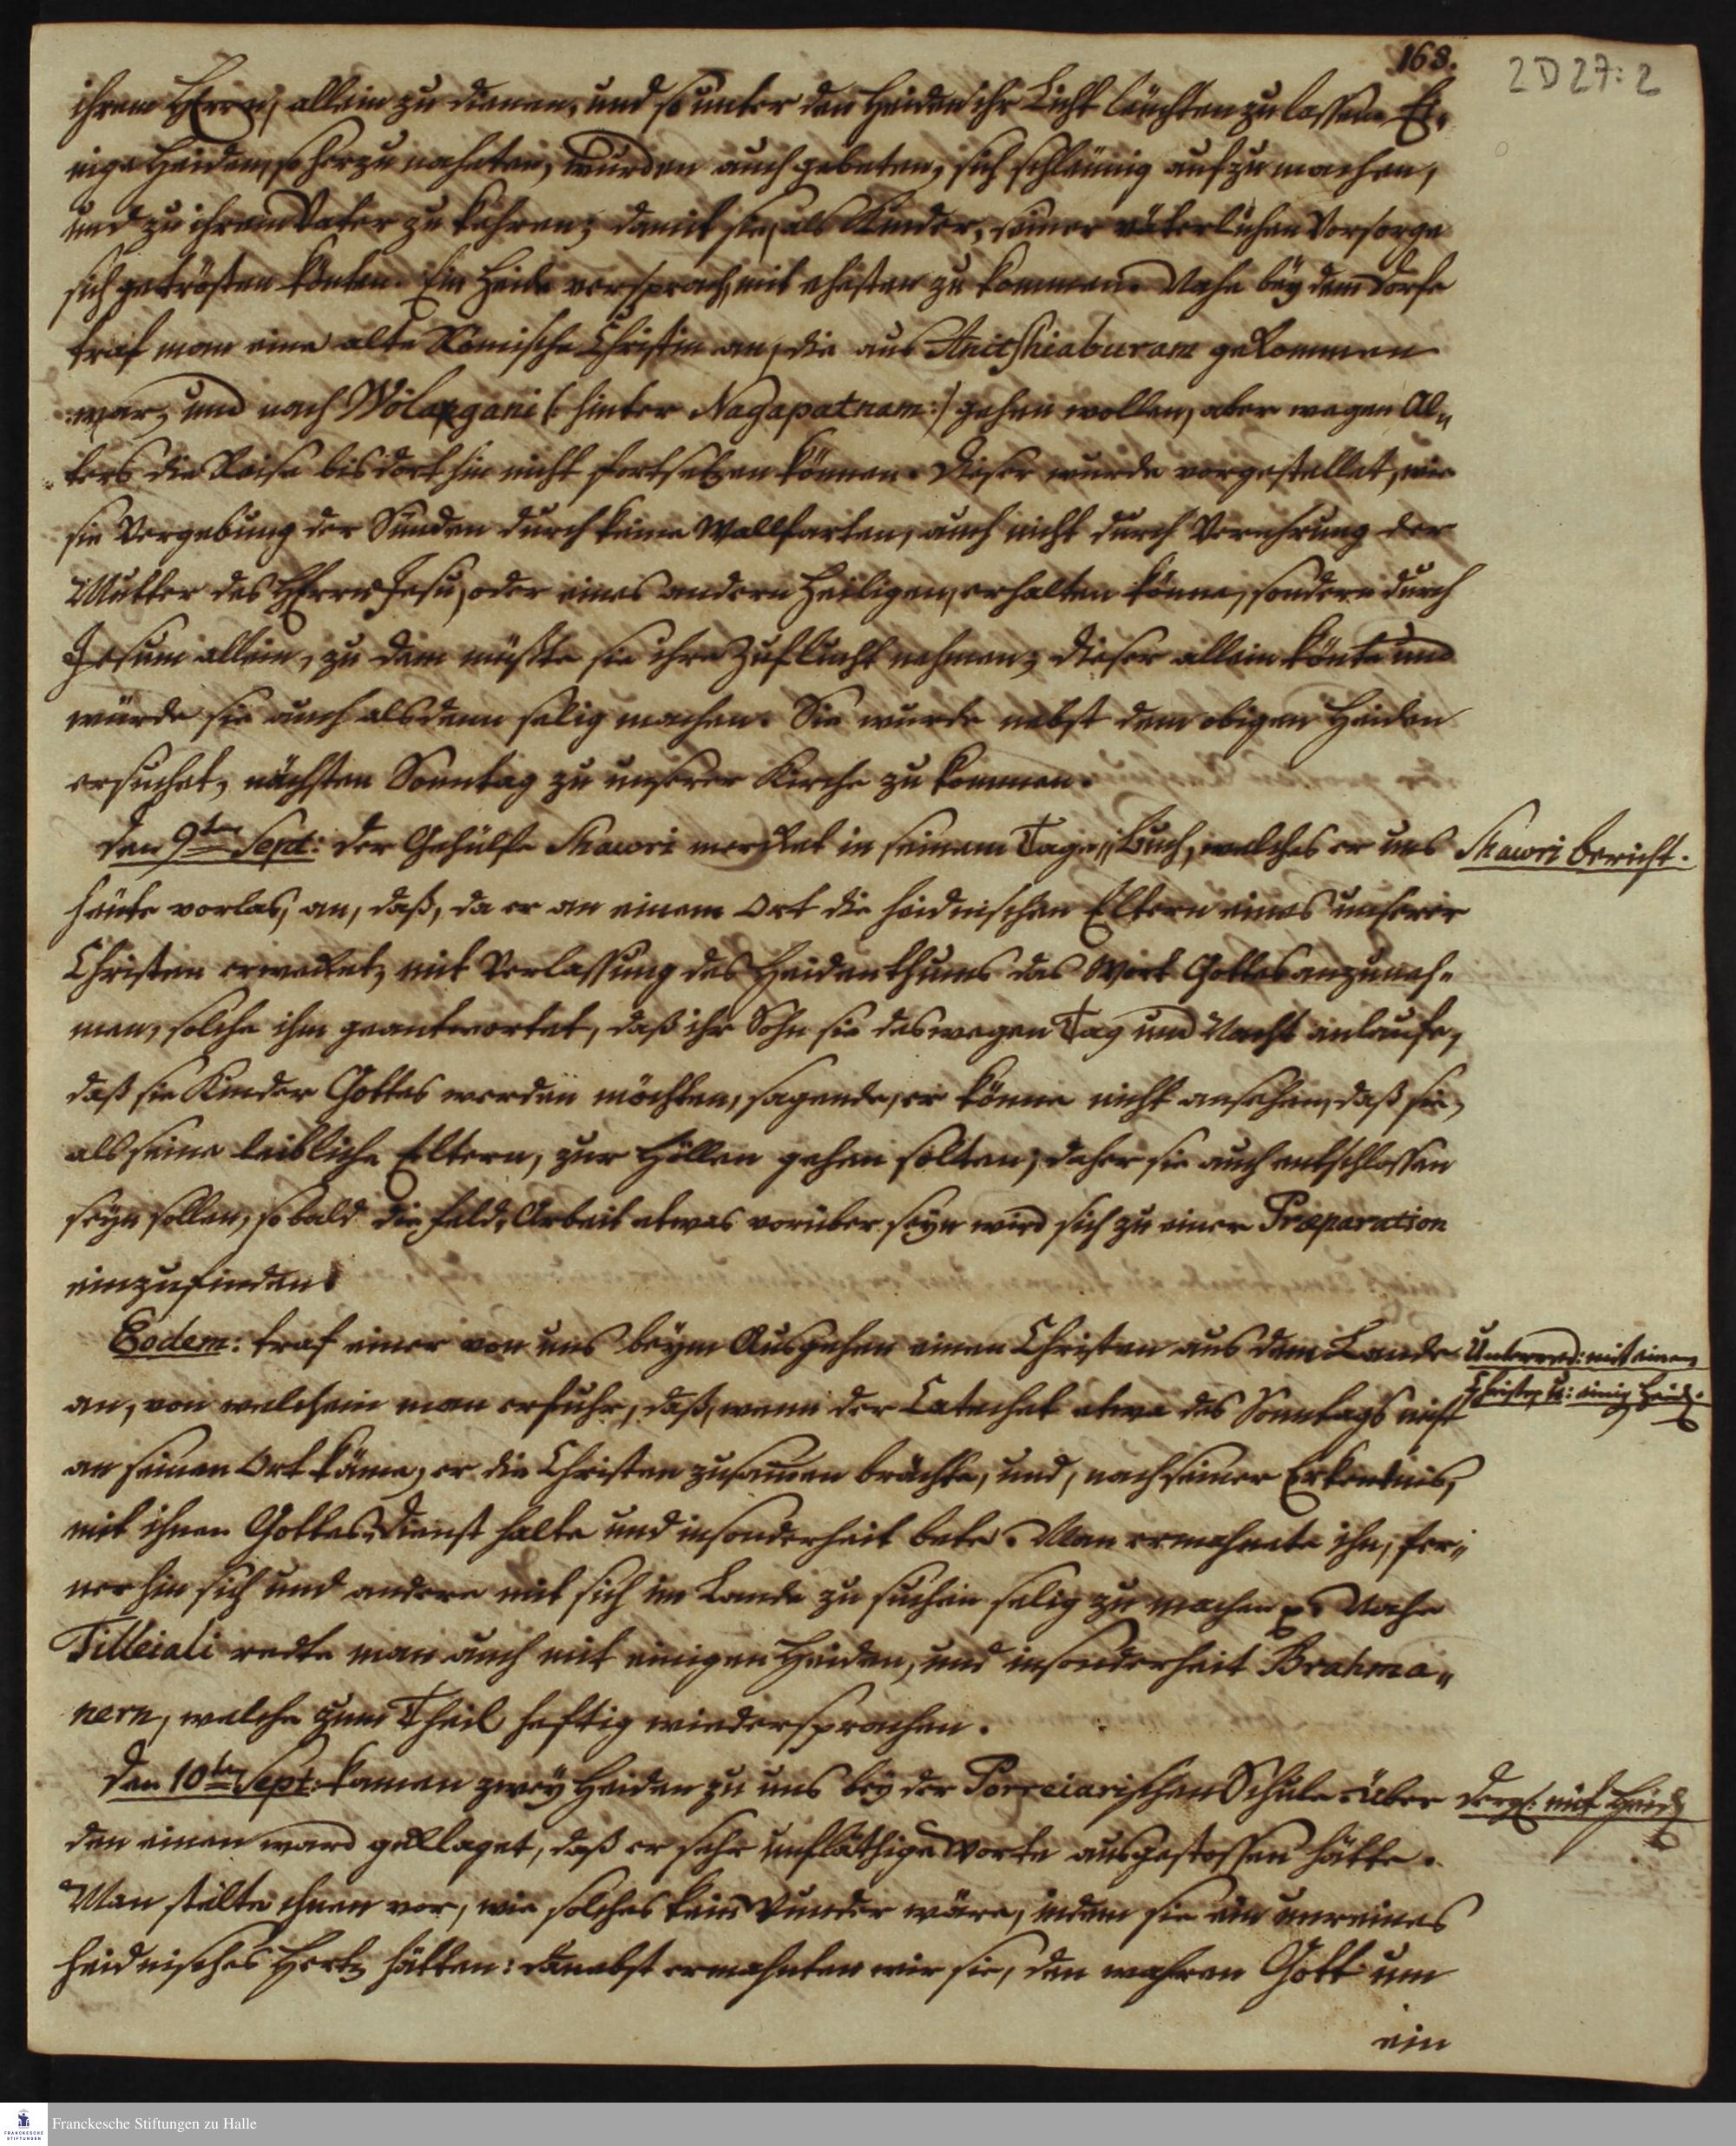 168.
2 D 27:2
ihrem HErrn, allein zu dienen, und so unter den Heiden ihr Licht leüchten zu lassen. Ei„
nige Heiden, so herzu naheten, wurden auch gebeten, sich schleünig aufzumachen,
und zu ihrem Vater zu kehren; damit sie, als Kinder, seiner väterlichen Vorsorge
sich getrösten könten. Ein Heide versprach, mit ehesten zu kommen. Nahe bey dem Dorfe
traf man eine alte Römische Christin an, die aus Anitshiaburam gekommen
war, und nach Wölangani (: hinter Nagapatnam :) gehen wollen, aber wegen Al„
ters die Reise bis dorthin nicht fortsetzen können. Dieser wurde vorgestellet, wie
sie Vergebung der Sünden durch keine Wallfarten, auch nicht durch Verehrung der
Mutter des HErrn Jesu, oder eines andern Heiligen, erhalten könne, sondern durch
Jesum allein, zu dem müßte sie ihre Zuflucht nehmen; dieser allein könte und
würde sie auch alsdenn selig machen. Sie wurde nebst dem obigen Heiden
ersuchet, nächsten Sonntag zu unserer Kirche zu kommen.
Den 9ten Sept: Der Gehülfe Shawri merket in seinem Tage„Buch, welches er uns
Shawri bericht.
heüte vorlas, an, daß, da er an einem Ort die heidnischen Eltern eines unserer
Christen erwecket, mit Verlassung des Heidenthums das Wort Gottes anzuneh„
men, solche ihm geantwortet, daß ihr Sohn sie deswegen Tag und Nacht anlaufe,
daß sie Kinder Gottes werden möchten, sagende, er könne nicht ansehen, daß sie,
als seine leibliche Eltern, zur Höllen gehen solten; daher sie auch entschlossen
seyn sollen, so bald die Feld„Arbeit etwas vorüber seyn wird sich zu einer Præparation
einzufinden.
Eodem: traf einer von uns beym Ausgehen einen Christen aus dem Lande
Unterred: mit einem
Christen u: einig Heid.
an, von welchem man erfuhr, daß, wenn der Catechet etwa des Sonntags nicht
an seinen Ort käme, er die Christen zusamen brächte, und, nach seiner Erkentnis,
mit ihnen Gottes„Dienst halte und insonderheit bete. Man ermahnete ihn, fer„
nerhin sich und andere mit sich im Lande zu suchen selig zu machen p. Nahe
Tilleiali redte man auch mit einigen Heiden, und insonderheit Brahma„
nern, welche zum Theil heftig wiedersprachen.
Den 10ten Sept: kamen zwey Heiden zu uns bey der Porreiarischen Schule. Über
dergl. mit Heid.
den einen ward geklaget, daß er sehr unfläthige Worte ausgestossen hätte.
Man stelte ihnen vor, wie solches kein Wunder wäre, indem sie ein unreines
heidnisches Hertz hätten: danebst ermahnten wir sie, den wahren Gott um
ein
Franckesche Stiftungen zu Halle
FRANCKESCHE
STIFTUNGEN